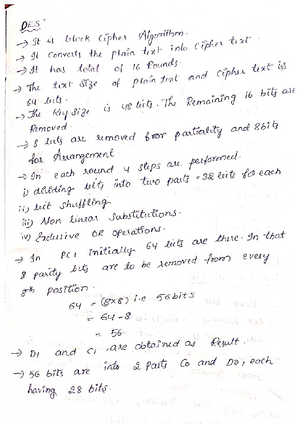 DES:
→ It is block Cipher Algorithm.
→ It converts the plain text into Cipher text.
→ It has total of 16 Rounds.
→ The text size of plain text and Cipher text is
64 bits.
→ The Key size is 48 bits. The Remaining 16 bits are
Removed.
→ 8 bits are removed for partiality and 8 bits
for Arrangement
→ In each round 4 steps are performed.
i) dividing bits into two parts = 32 bits for each
ii) bit shuffling
iii) Non linear Substitutions.
iv) Exclusive OR operations.
→ In PC1 initially 64 bits are there. In that
8 parity bits are to be removed from every
8th position.
64 - (8x8) i.e 56 bits
= 64 - 8
= 56
→ D1 and C1 are obtained as Result.
→ 56 bits are into 2 parts C0 and D0, each
having 28 bits.